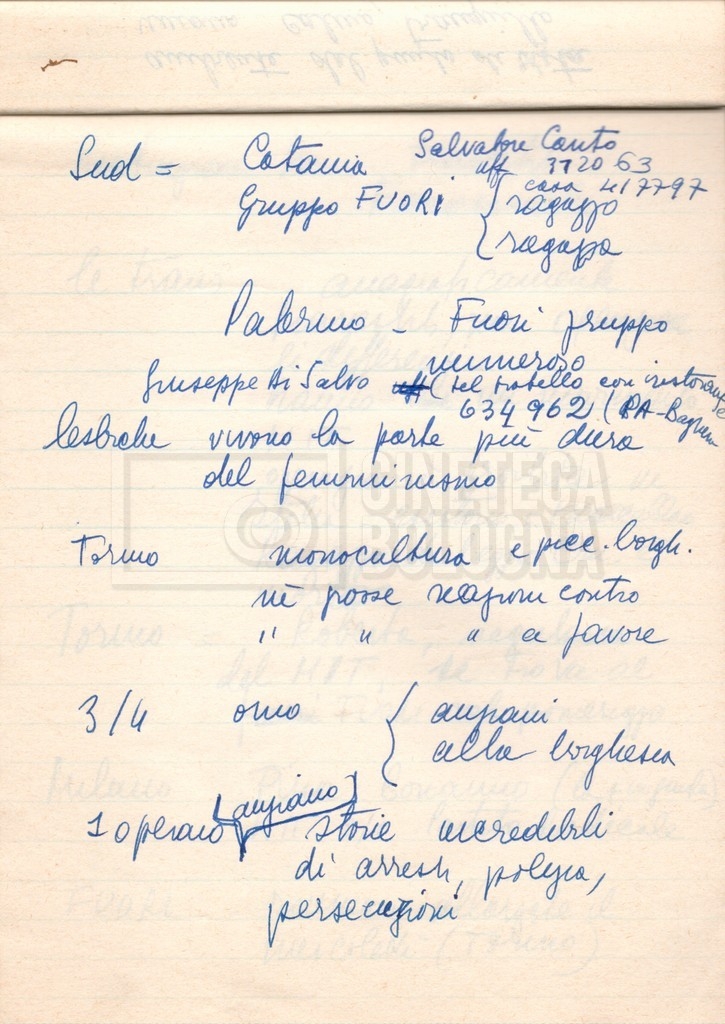 Sud = Catania Salvatore Canto
uff 372063
casa 417797
Gruppo FUORI { ragazzo
{ ragazza
Palermo - Fuori gruppo
numeroso
Giuseppe Di Salvo (tel fratello con
634962 (PA-
lesbiche vivono la parte più dura
del femminismo
CINETECA
BOLOGNA
Torino monocultura e picc. borgh.
nè grosse reazioni contro
" " " a favore
3/4 omo { anziani
alta borghesia
1 operaio (anziano) storie incredibili
di arresti, polizia,
persecuzioni